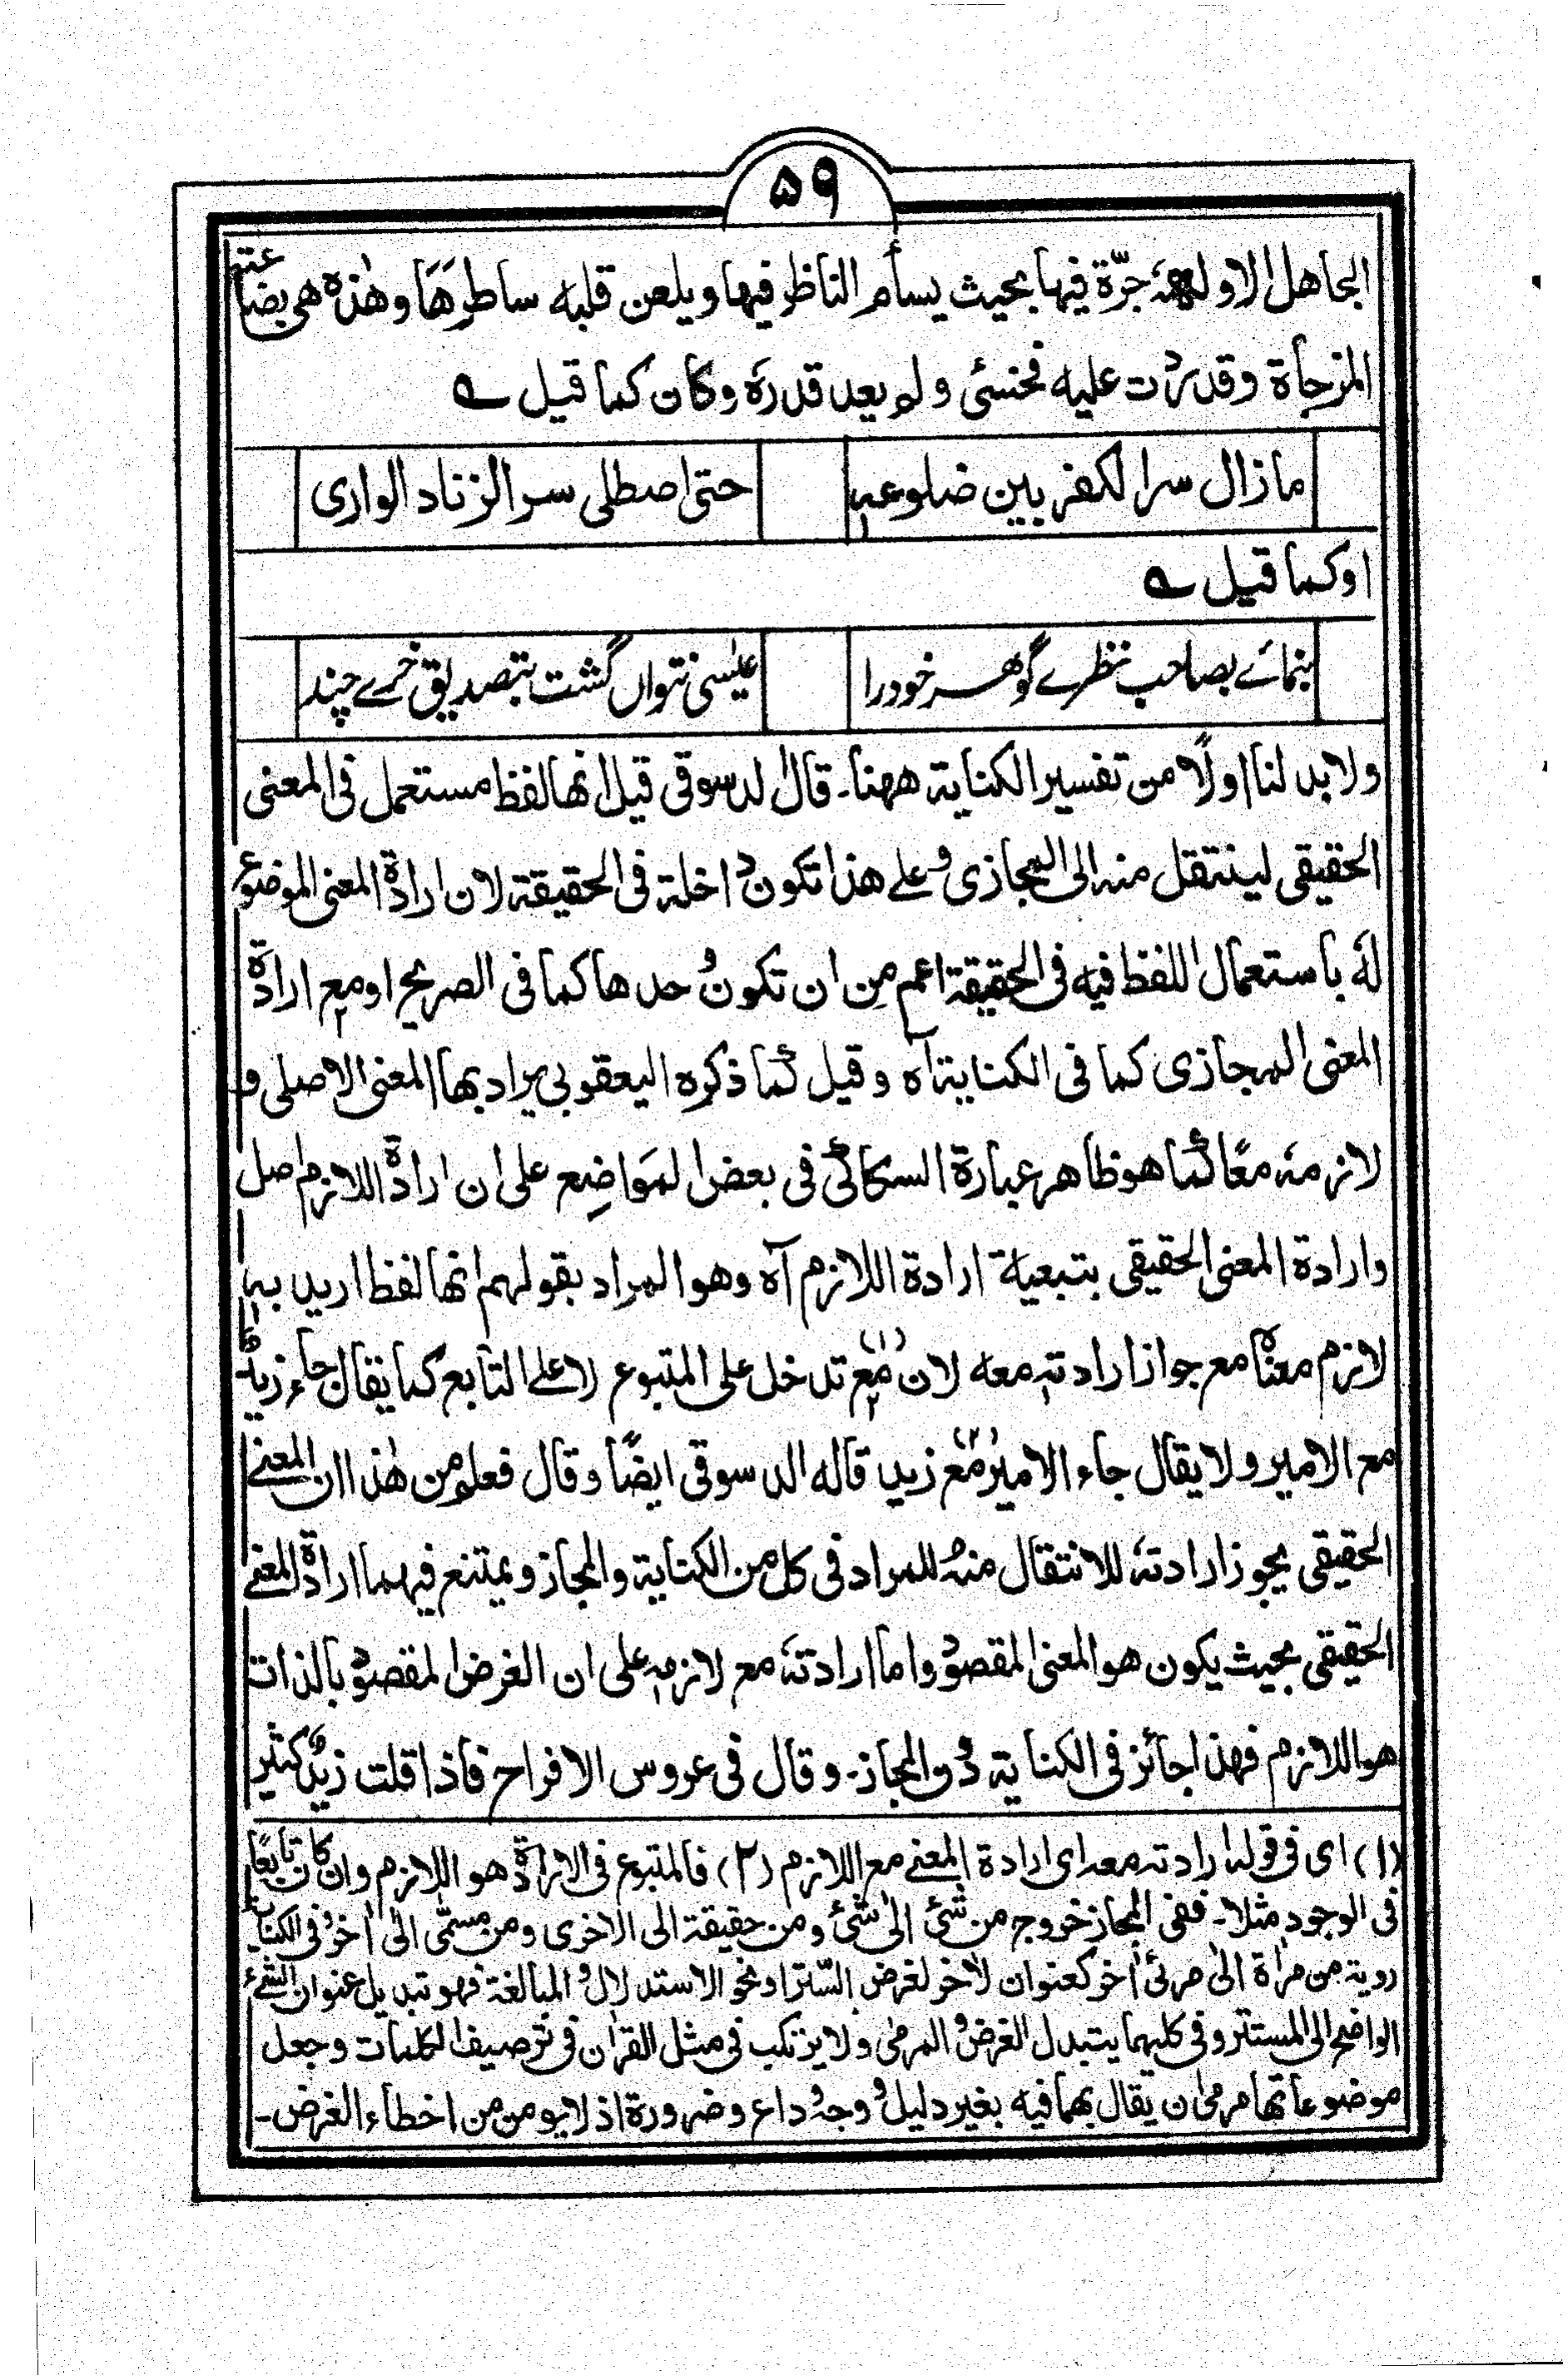 ۵۹
الجاهل الا وله جرّة فيها بحيث يسأم الناظر فيها ويلعن قلبه ساطرها وهٰذه هى بضاعته
المزجاة وقد ردت عليه فخسئ ولم يعد قدره وكان كما قيل ؎
مازال سر الكفر بين ضلوعه حتى اصطلى سر الزناد الوارى
اوكما قيل ؎
بنمائے بصاحب نظرے گوهر خودرا عيسٰى نتواں گشت بتصديق خرے چند
ولابد لنا اولًا من تفسير الكناية ههنا۔ قال الدسوقى قيل انها لفظ مستعمل فى المعنى
الحقيقى لينتقل منه الى المجازى وعلى هذا تكون داخلة فى الحقيقة لان ارادة المعنى الموضوع
له باستعمال اللفظ فيه فى الحقيقة اعم من ان تكون وحدها كما فى الصريح او مع ارادة
المعنى المجازى كما فى الكناية اه وقيل كما ذكره اليعقوبى يراد بها المعنى الاصلى و
لازمه معًا كما هو ظاهر عبارة السكاكى فى بعض المواضع على ان ارادة اللازم اصل
وارادة المعنى الحقيقى بتبعية ارادة اللازم آه وهو المراد بقولهم انها لفظ اريد به
لازم معناه مع جواز ارادته معه لان مع (۱) تدخل على المتبوع لا على التابع كما يقال جاء زيد
مع الامير ولا يقال جاء الامير مع زيد قاله الدسوقى ايضًا وقال فعلم من هٰذا ان المعنى
الحقيقى يجوز ارادته للانتقال منه للمراد فى كل من الكناية والمجاز ويمتنع فيهما ارادة المعنى
الحقيقى بحيث يكون هو المعنى المقصود واما ارادته مع لازمه على ان الغرض المقصود بالذات
هو اللازم فهذا جائز فى الكناية دون المجاز۔ وقال فى عروس الافراح فاذا قلت زيد كثير
(۱) اى فى قوله ارادته معه اى ارادة المعنى مع اللازم (۲) فالمتبوع فى الارادة هو اللازم وان كان تابعًا
فى الوجود مثلا۔ ففى المجاز خروج من شئ الى شئ ومن حقيقة الى الاخرى ومن مسمّٰى الى اٰخر وفى الكناية
روية من مراٰة الى مرئى اٰخر كعنوان لاٰخر لغرض السّتر او نحو الاستدلال والمبالغة فهو تبديل عنوان الشئ
الواضح الى المستتر وفى كليهما يتبدل الغرض والمرمٰى ولا يرتكب فى مثل القراٰن فى ترصيف الكلمات وجعل
موضوعاتها مرمٰى ان يقال بهما فيه بغير دليل ووجه وداع وضرورة اذ لا يومن من اخطاء الغرض۔